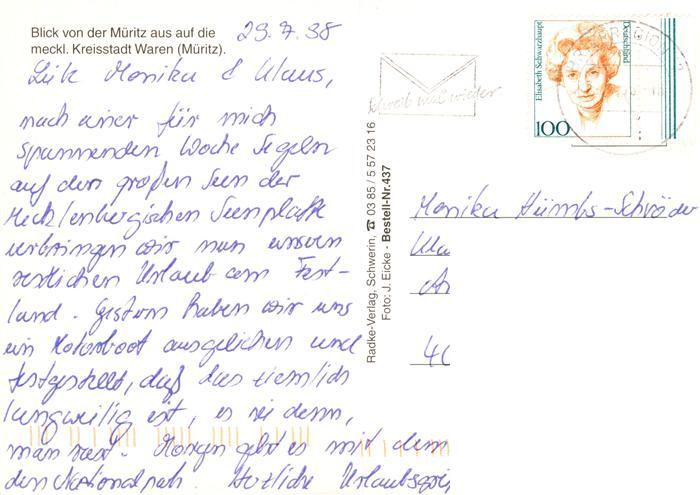 Blick von der Müritz aus auf die
meckl. Kreisstadt Waren (Müritz).
29.7.98
Monika & Klaus,
nach einer für mich
spannenden Woche Segeln
auf den großen Seen der
Mecklenbergischen Seenplatte
verbringen wir nun unseren
restlichen Urlaub am Fest-
land. Gestern haben wir uns
ein Motorboot ausgeliehen und
festgestellt, daß das ziemlich
langweilig ist, es sei denn,
man rast. Morgen geht es mit dem
den Nationalpark. Herzliche Urlaubsgrü
Radke-Verlag, Schwerin, ☎ 03 85 / 5 57 23 16
Foto: J. Eicke - Bestell-Nr.437
Schreib mal wieder
Elisabeth Schwarzhaupt
Deutschland
100
Monika Hümbs-Schröder
Kla
40